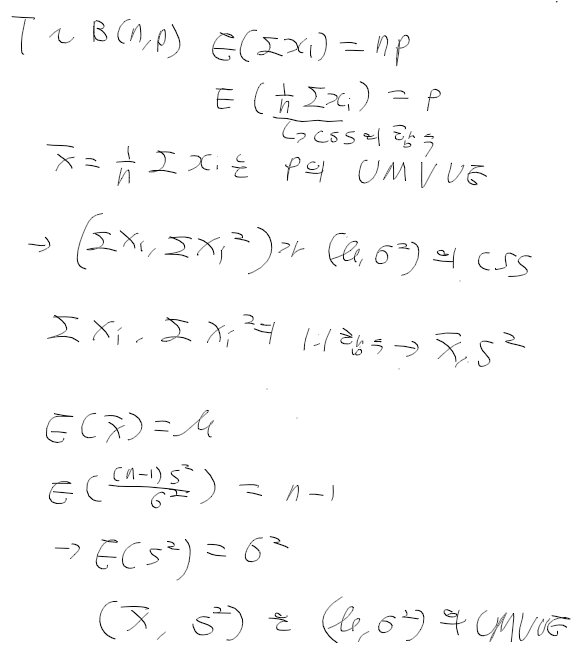 T ~ B(n,p) E(Σxi) = np
E(1/n Σxi) = p
↳ CSS의 함수
X̄ = 1/n Σxi는 p의 UMVUE
→ (Σxi, Σxi²)가 (μ, σ²)의 CSS
Σxi, Σxi²의 1:1함수 → X̄, S²
E(X̄) = μ
E((n-1)S²/σ²) = n-1
→ E(S²) = σ²
(X̄, S²)는 (μ, σ²)의 UMVUE